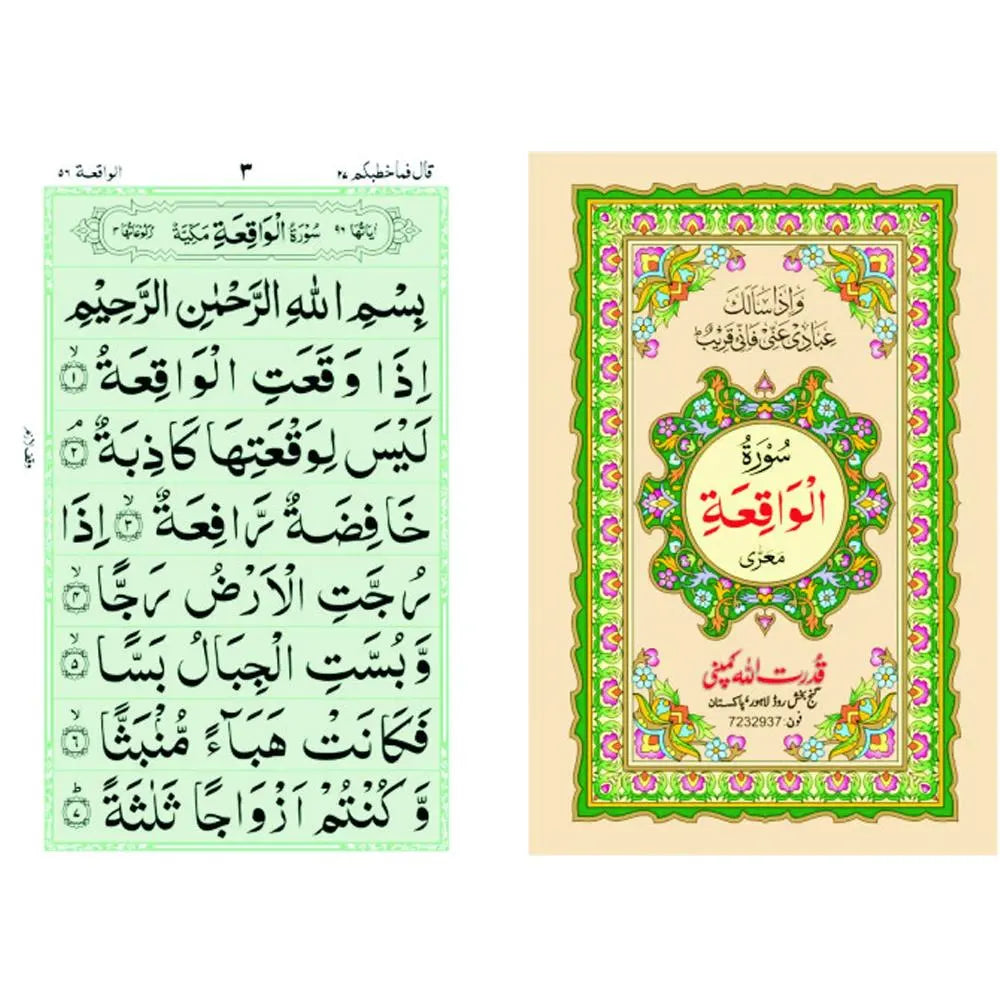 قال فما خطبكم ۲۷
۳
الواقعة ۵۶
اٰیَاتُهَا ۹۶
سُوْرَةُ الْوَاقِعَةِ مَكِّيَّةٌ
رُكُوْعَاتُهَا ۳
بِسْمِ اللّٰهِ الرَّحْمٰنِ الرَّحِيْمِ
اِذَا وَقَعَتِ الْوَاقِعَةُ ۙ ۱
لَيْسَ لِوَقْعَتِهَا كَاذِبَةٌ ۘ ۲
وقف لازم
خَافِضَةٌ رَّافِعَةٌ ۙ ۳ اِذَا
رُجَّتِ الْاَرْضُ رَجًّا ۙ ۴
وَّ بُسَّتِ الْجِبَالُ بَسًّا ۙ ۵
فَكَانَتْ هَبَآءً مُّنْۢبَثًّا ۙ ۶
وَّ كُنْتُمْ اَزْوَاجًا ثَلٰثَةً ؕ ۷
وَاِذَا سَاَلَكَ
عِبَادِیْ عَنِّیْ فَاِنِّیْ قَرِیْبٌ ؕ
سُوْرَةُ
الْوَاقِعَةِ
مَعَرّٰی
قدرت اللہ کمپنی
گنج بخش روڈ لاہور، پاکستان
فون: 7232937